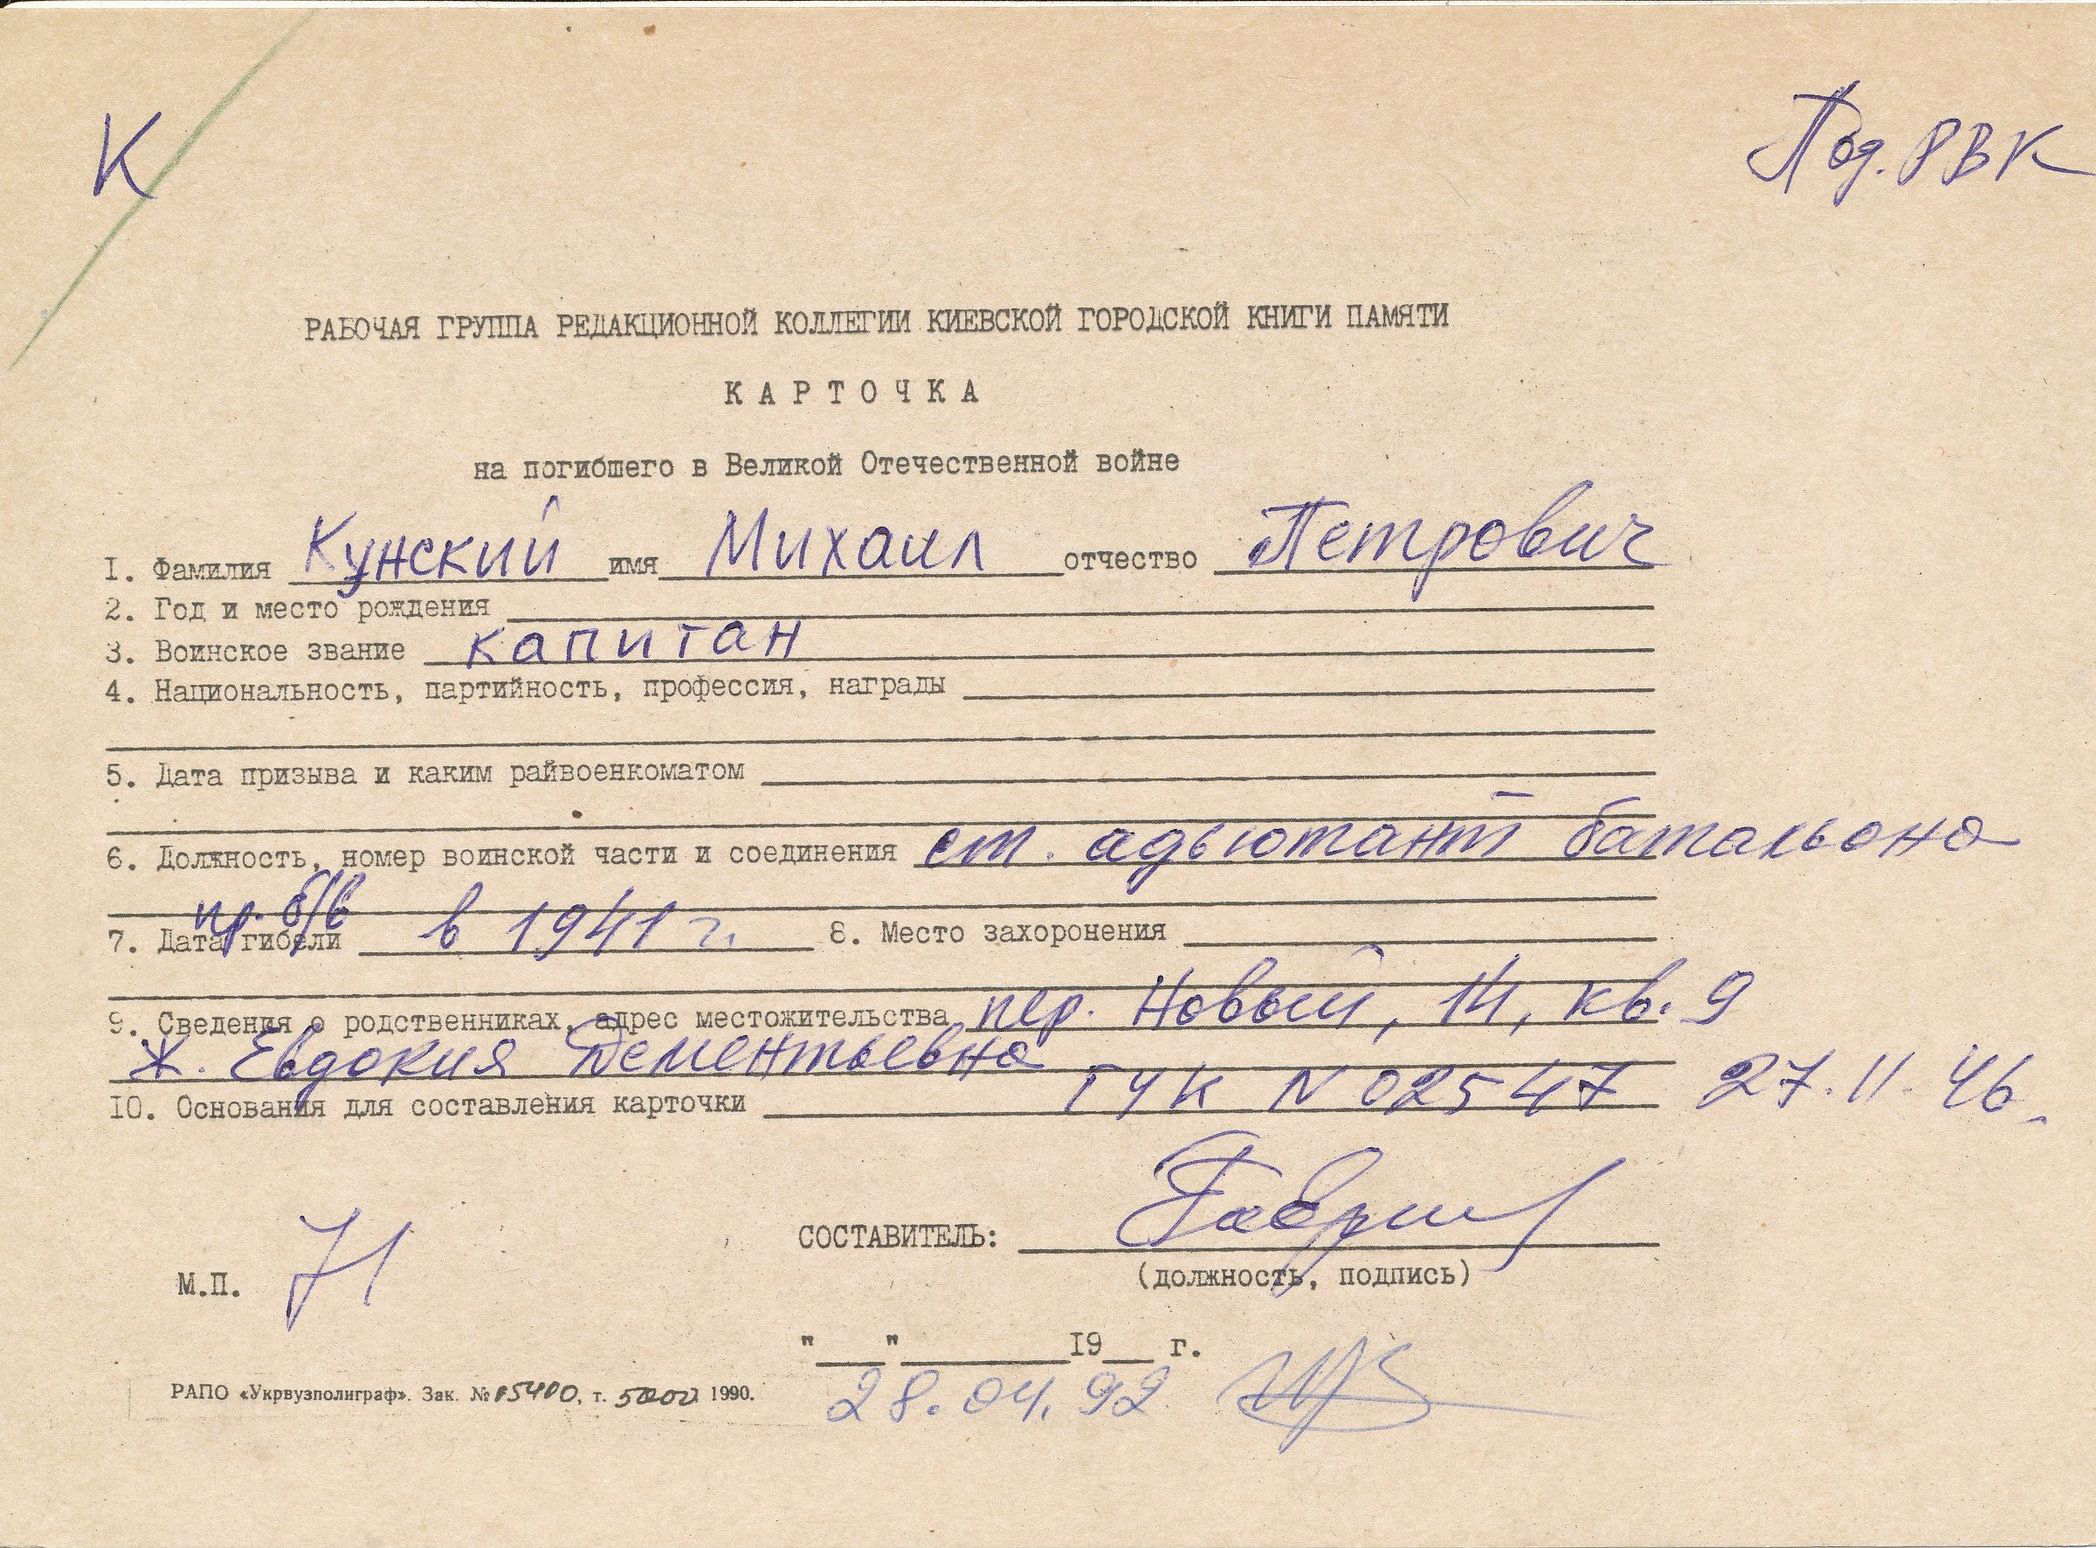 К
Под. РВК
РАБОЧАЯ ГРУППА РЕДАКЦИОННОЙ КОЛЛЕГИИ КИЕВСКОЙ ГОРОДСКОЙ КНИГИ ПАМЯТИ
КАРТОЧКА
на погибшего в Великой Отечественной войне
1. Фамилия Кунский имя Михаил отчество Петрович
2. Год и место рождения
3. Воинское звание капитан
4. Национальность, партийность, профессия, награды
5. Дата призыва и каким райвоенкоматом
6. Должность, номер воинской части и соединения ст. адьютант батальона
пр. б/в
7. Дата гибели в 1941 г. 8. Место захоронения
9. Сведения о родственниках, адрес местожительства пер. Новый, 14, кв. 9
ж. Евдокия Дементьевна
10. Основания для составления карточки ГУК N 02547 27.11.46.
СОСТАВИТЕЛЬ:
(должность, подпись)
М.П. 71
"__"______19__ г.
28.04.92
РАПО «Укрвузполиграф». Зак. № 05400, т. 5000 1990.